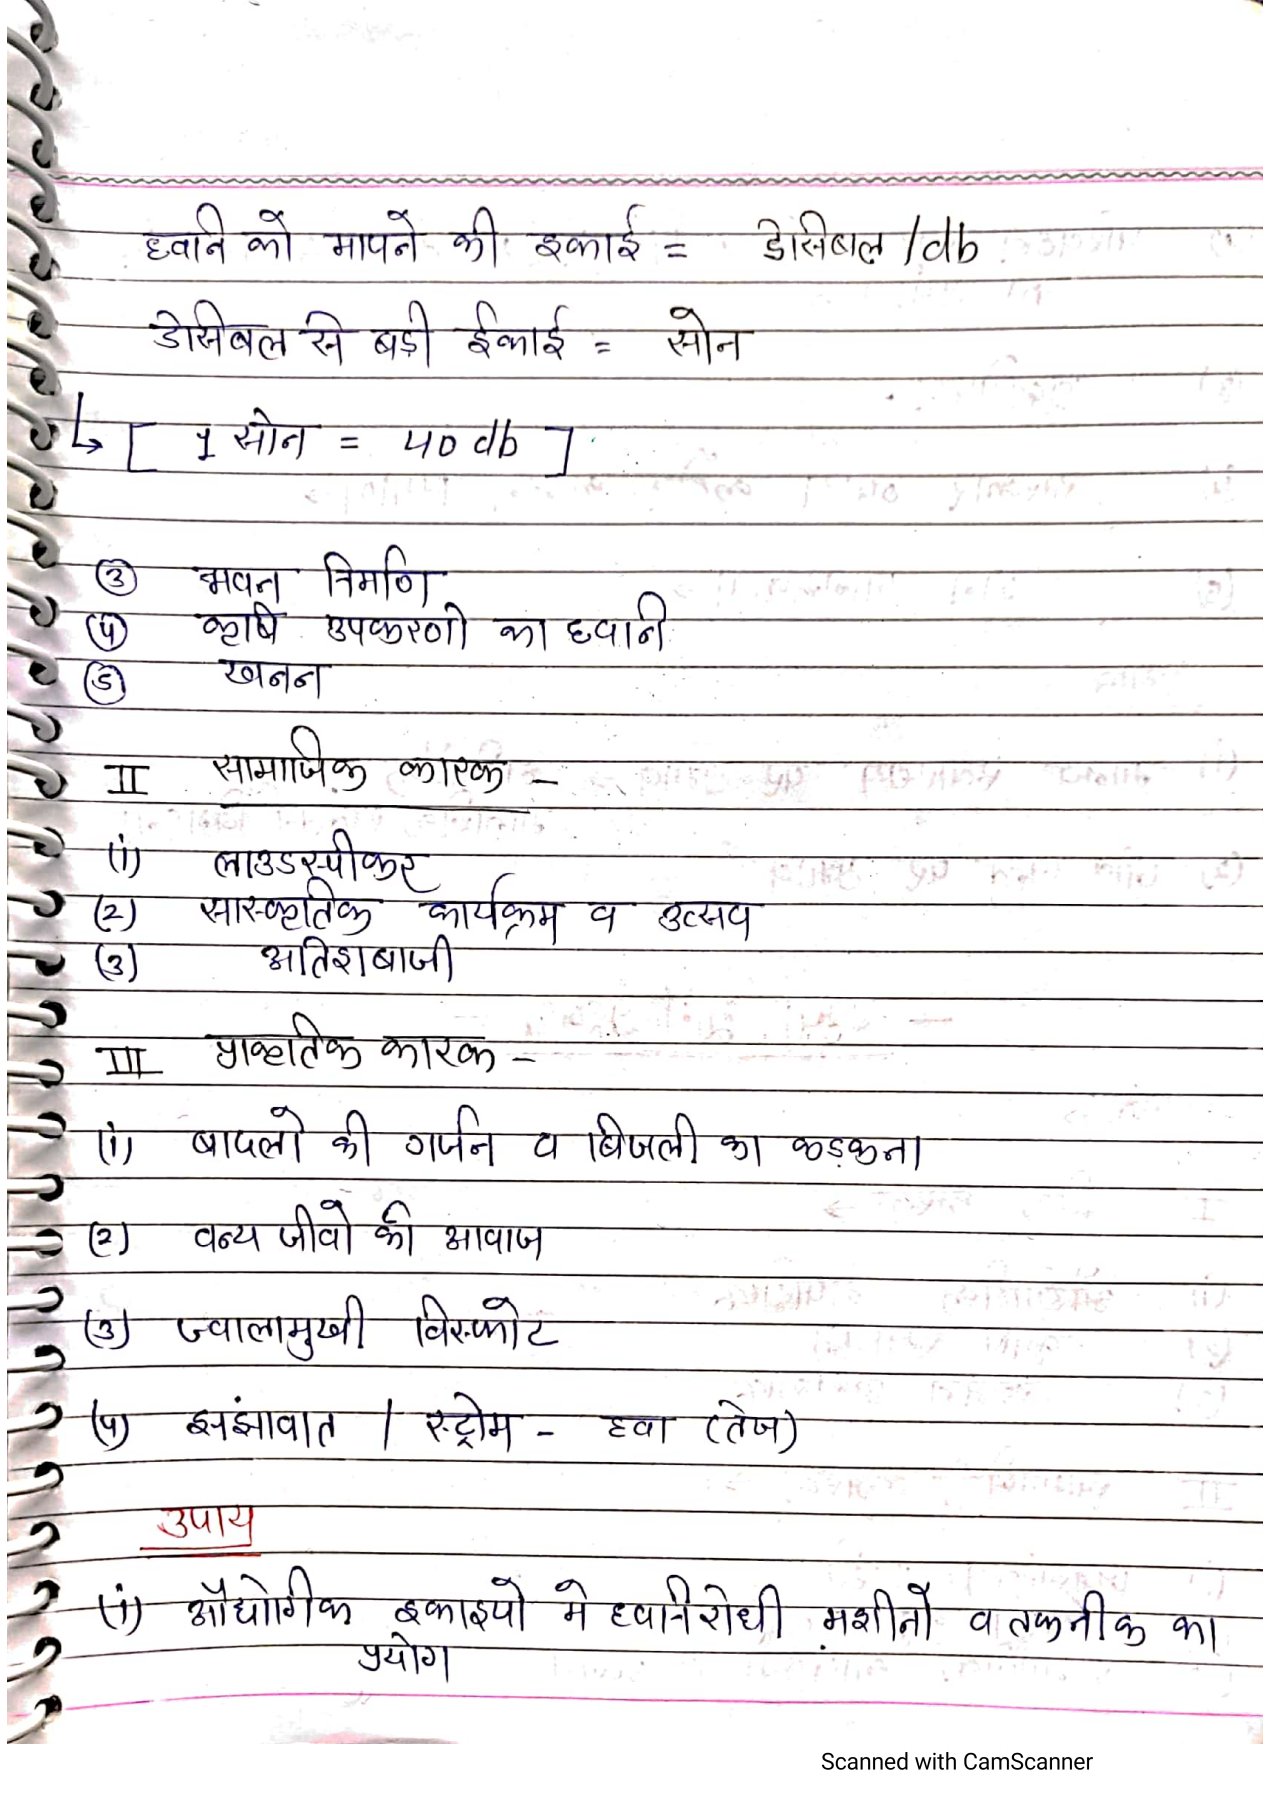 ध्वनि को मापने की इकाई = डेसिबाल / db
डेसिबल से बड़ी ईकाई = सोन
↳ [ 1 सोन = 40 db ]
③ भवन निर्माण
④ कृषि उपकरणो का ध्वानी
⑤ खनन
II सामाजिक कारक -
(i) लाउडस्पीकर
(2) सास्कृतिक कार्यक्रम व उत्सव
(3) आतिशबाजी
III प्राकृतिक कारक -
(i) बादलो की गर्जन व बिजली का कड़कना
(2) वन्य जीवो की आवाज
(3) ज्वालामुखी विस्फोट
(4) झंझावात / स्ट्रोम - हवा (तेज)
उपाय
(i) औद्योगिक इकाइयो मे ध्वनिरोधी मशीनों व तकनीक का
प्रयोग
Scanned with CamScanner